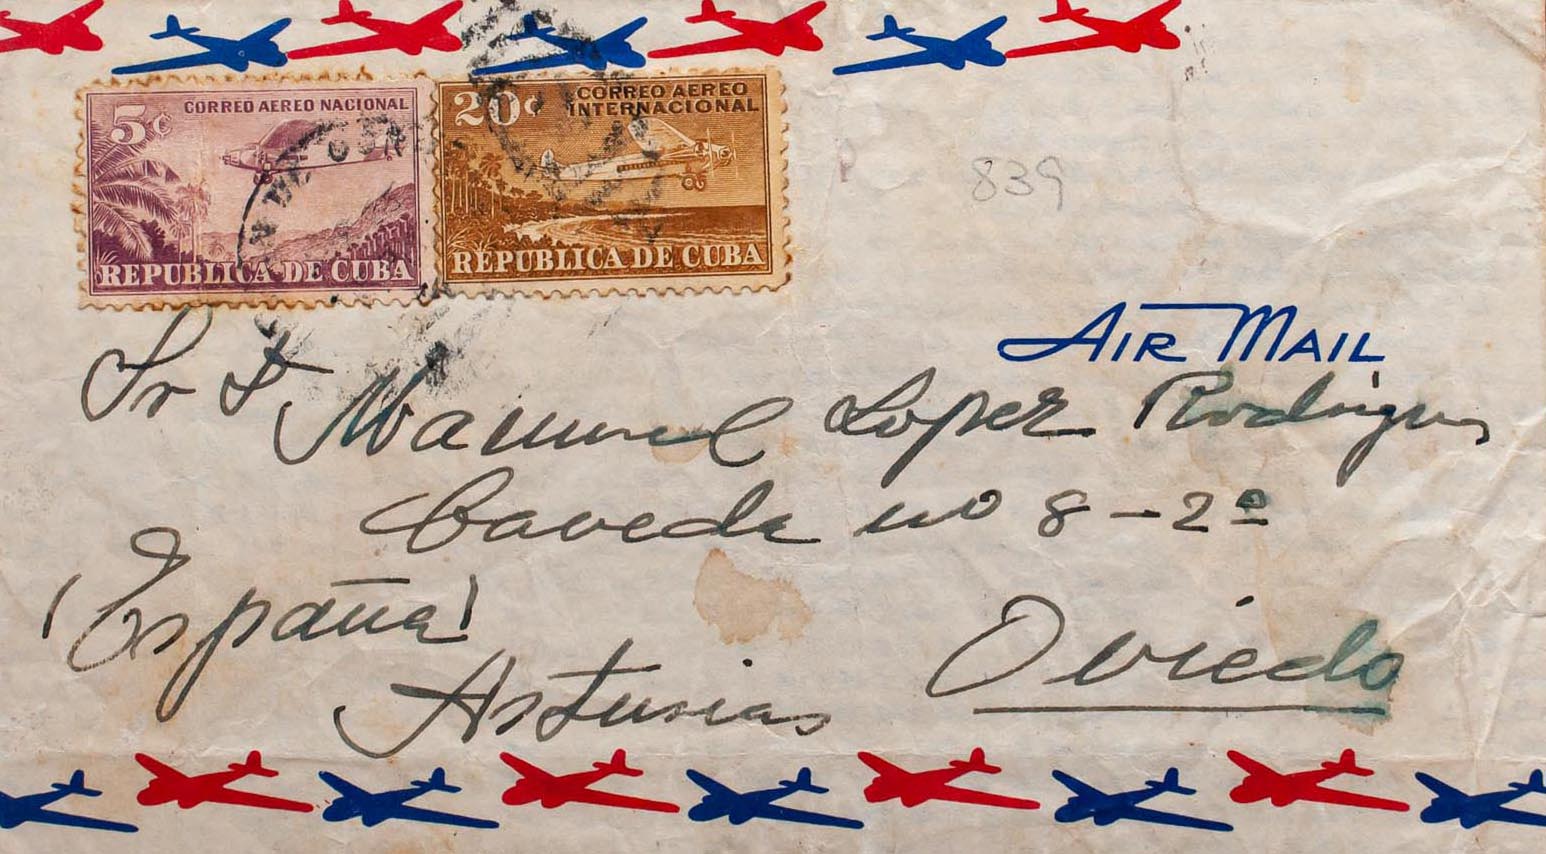 5¢ CORREO AEREO NACIONAL
REPUBLICA DE CUBA
20¢ CORREO AEREO
INTERNACIONAL
REPUBLICA DE CUBA
839
AIR MAIL
Sr D Manuel Lopez Rodriguez
Caveda nº 8-2º
(España)
Asturias
Oviedo